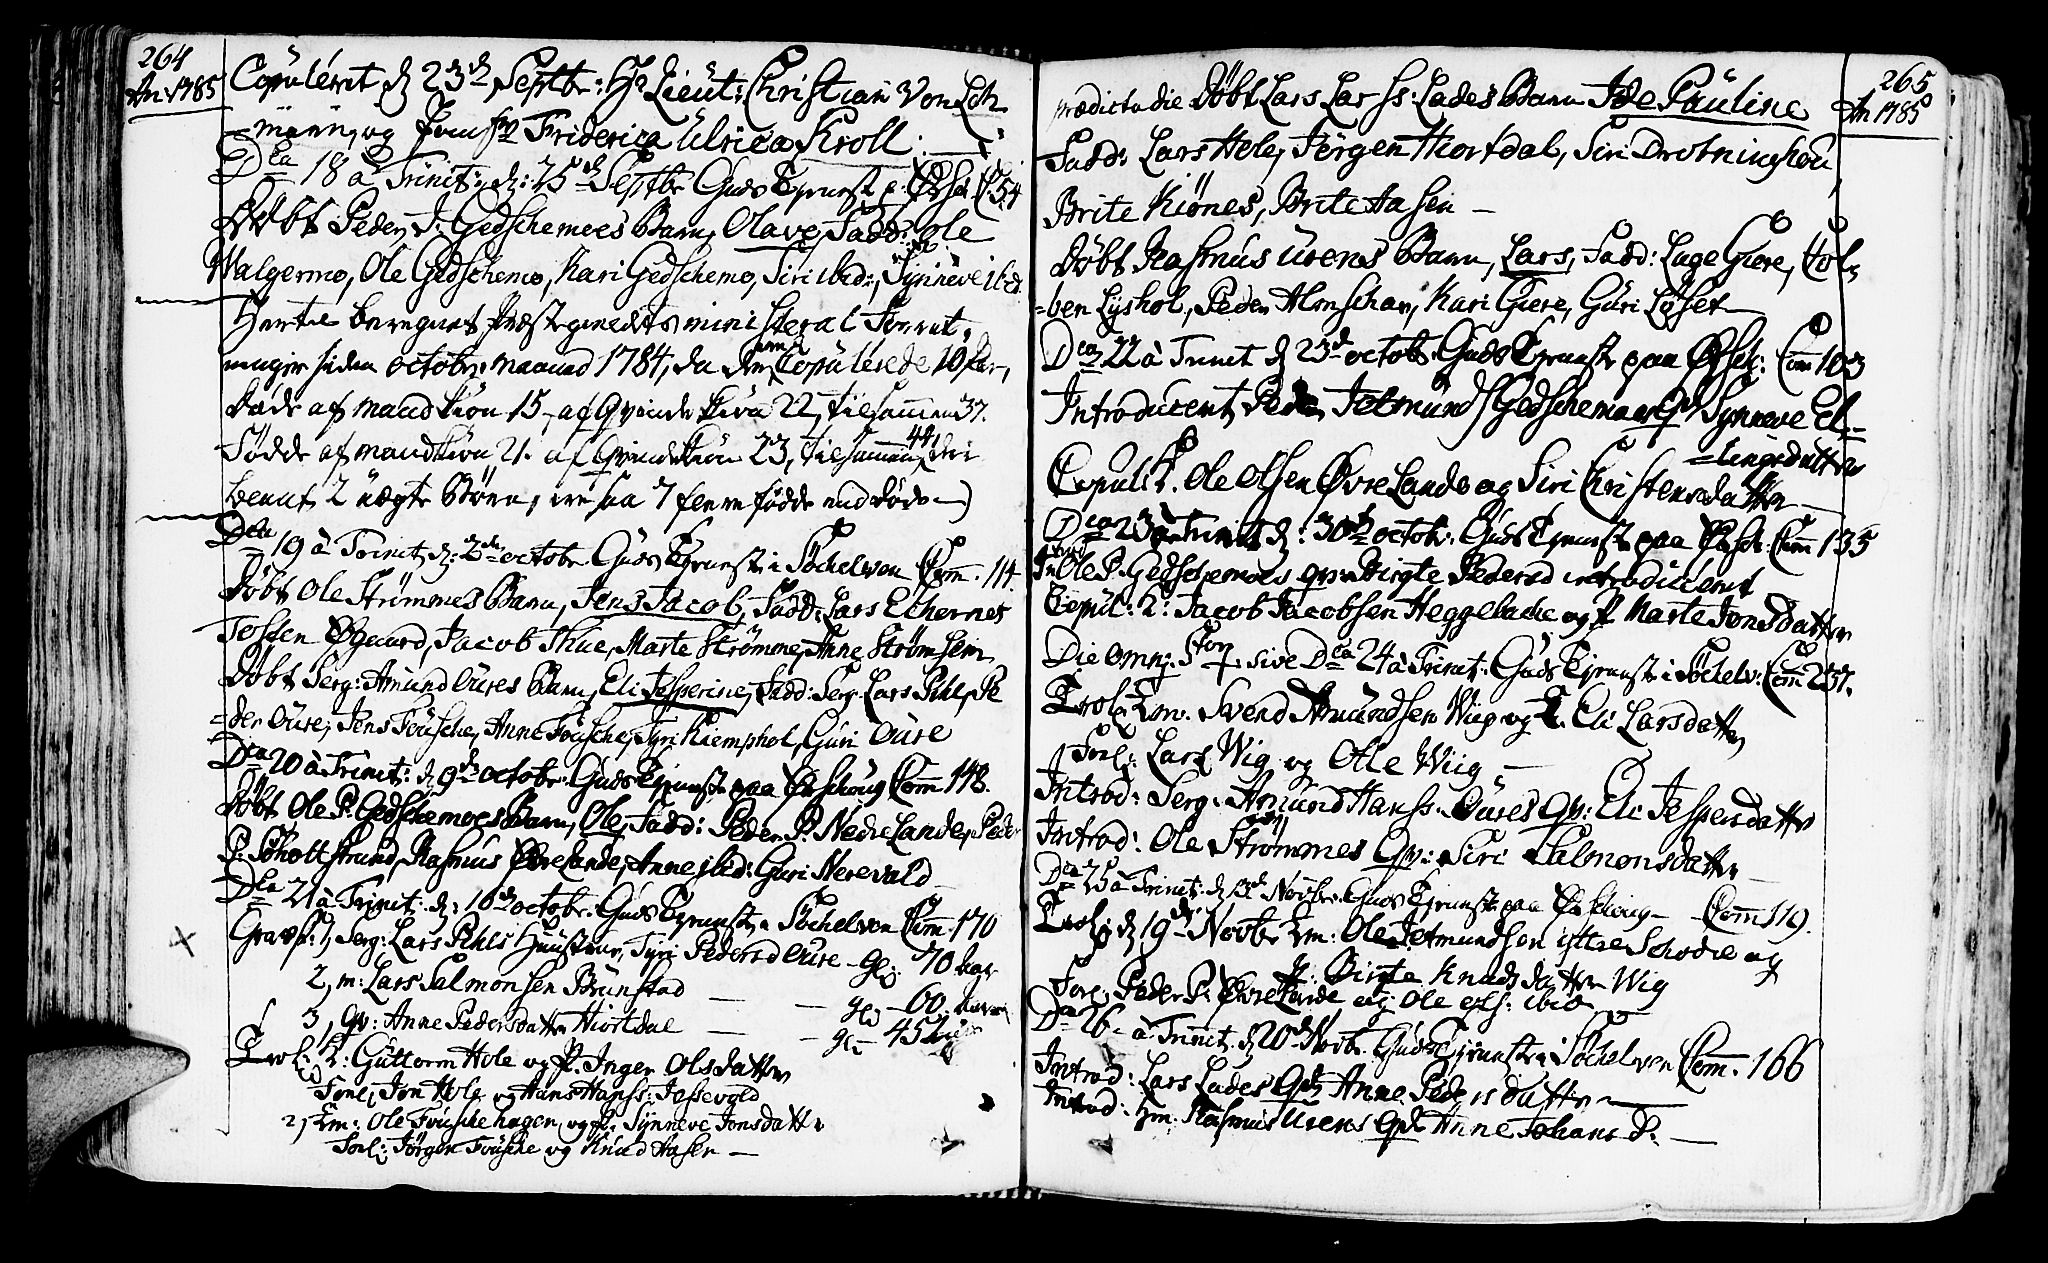 264
An: 1785
Copuleret d 23de Septbr: Hr Lieut: Christian Von Leh
=mann, og Jomfr Friderica Ulrica Kroll.
Dca 18 à Trinit: d: 25de Septbr Guds Tjenest p. Ørsch. C. 54
Døbt Peder J: Gedschemoes Barn, Olave, Fadd: Ole
Walgermo, Ole Gedschemo, Kari Gedschemo, Siri ibid:, Synneve ibd.
Hertil beregnet Præstegieldets ministerial Forret,
ninger siden octobr: maaned 1784, da der er Copulerede 10 Par,
døde af mandkiøn 15, af Qvindekiøn 22, tilsammen 37.
Fødde af mandkiøn 21. af Qvindekiøn 23, tilsammen 44,
iblant 2 uægte Børn, er saa 7 flere fødde end døde
Dca 19 à Trinit: d: 2den octobr Guds Tjenest i Søchelven Com. 114.
Døbt Ole Strømmes Barn, Jens Jacob, Fadd: Lars Echernes
Tosten Øgaard, Jacob Thue, Marte Strømme, Anne Strømsem
Døbt Serg: Amund Oures Barn, Eli Jesperine, Fadd: Serg Lars Pihl, Pe
=der Oure, Jens Fousche, Anne Fousche, Tyri Kiemphol, Guri Oure
Dca 20 à Trinit: d 9de octobr: Guds Tjenest paa Ørschoug Com 148.
Døbt Ole P: Gedschemoes Barn, Ole, Fadd: Peder P: Nedre Lande, Peder
P: Søholtstrand, Rasmus Øvrelande, Anne ibid: Guri Nerevald
Dca 21 à Trinit: d: 16de octobr: Guds Tjenest i Søchelven Com: 170
Gravf: 1, Serg: Lars Pihls Huustrue, Tyri Pedersd Oure - gl: 70 Aar
2, m: Lars Salmonsen Brunstad - gl: 60.
3, Qv: Anne Pedersdatter Hiortdal - gl: 45
Trol: K: Guttorm Hole og P. Inger Olsdatter
Forl: Jon Hole og Hans Hanss: Jessevold
2, Em: Ole Fouskehagen, og P. Synneve Jonsdatter
Forl: Jørgen Fouske og Knud Hasen
265
An 1785
prædicto die Døbt Lars Lars S: Lades Barn Ide Pauline
Fadd: Lars Hole, Jørgen Hiortdal, Siri Drotninghou
Brite Kiønes, Brite Hasen
Døbt Rasmus Urens Barn, Lars, Fadd: Lage Giere, Tol,
=ben Lyshol, Peder Almschar, Kari Giere, Guri Løset
Dca 22 à Trinit d 23de octob: Guds Tjenest paa Ørsch: Com 103
Introducert Peder Jetmunds Gedschemoes Qv Synneve El=
=lingsdatter
Copul: K. Ole Olsen Øvre Lande og Siri Christensdatter
Dca 23 à Trinit d: 30de octobr. Guds Tjenest paa Ørsch: Com 135
Ole P. Gedschemoes qv: Birgte Pedersd introduceret
Copul: 2: Jacob Jacobsen Heggebache og P Marte Jonsdatter
Die omn: S. sive Dca 24 à Trinit: Guds Tjenest i Søchelv: Com 237.
Trol: Em. Svend Amundsen Wiig og P. Eli Larsdatter
Forl: Lars Wig og Ole Wiig
Introd: Serg: Amund Hanss: Oures Qv: Eli Jespersdatter
Introd: Ole Strømmes Qv: Siri Salmonsdatter
Dca 25 à Trinit: d 13de Novbr. Guds Tjenest paa Ørschoug - Com 119.
Trol: d 19de Novbr Em: Ole Jetmundsen yttre Schodie og
P: Birgte Knudsdatter Wig
Forl: Peder P: Øvre Lande og Ole ibid
Dca 26 à Trinit. d 20de Novb. Guds Tjenest i Søchelven Com. 166
Introd: Lars Lades Qv: Anne Pedersdatter
Introd: Hm: Rasmus Urens Qv: Anne Johans D: